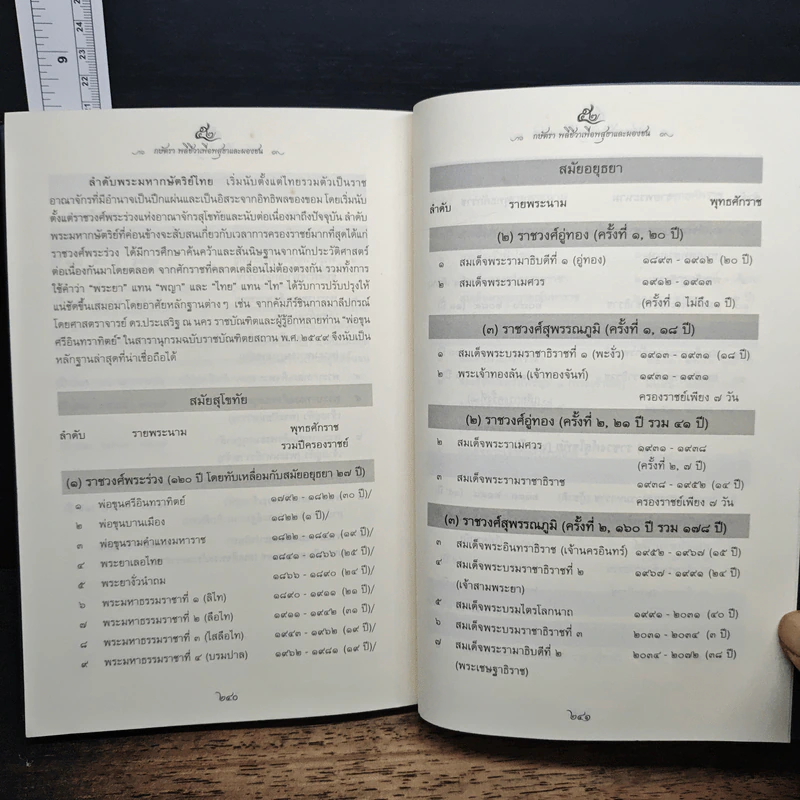 9
24
23
22
21
๕๒
กษัตรา พลีชีวาเพื่อพสุธาและผองชน
ลำดับพระมหากษัตริย์ไทย เริ่มนับตั้งแต่ไทยรวมตัวเป็นราช
อาณาจักรที่มีอำนาจเป็นปึกแผ่นและเป็นอิสระจากอิทธิพลของขอม โดยเริ่มนับ
ตั้งแต่ราชวงศ์พระร่วงแห่งอาณาจักรสุโขทัยและนับต่อเนื่องมาถึงปัจจุบัน ลำดับ
พระมหากษัตริย์ที่ค่อนข้างจะสับสนเกี่ยวกับเวลาการครองราชย์มากที่สุดได้แก่
ราชวงศ์พระร่วง ได้มีการศึกษาค้นคว้าและสันนิษฐานจากนักประวัติศาสตร์
ต่อเนื่องกันมาโดยตลอด จากศักราชที่คลาดเคลื่อนไม่ต้องตรงกัน รวมทั้งการ
ใช้คำว่า "พระยา" แทน "พญา" และ "ไทย" แทน "ไท" ได้รับการปรับปรุงให้
แน่ชัดขึ้นเสมอมาโดยอาศัยหลักฐานต่างๆ เช่น จากคัมภีร์ชินกาลมาลีปกรณ์
โดยศาสตราจารย์ ดร.ประเสริฐ ณ นคร ราชบัณฑิตและผู้รู้อีกหลายท่าน "พ่อขุน
ศรีอินทราทิตย์" ในสารานุกรมฉบับราชบัณฑิตยสถาน พ.ศ. ๒๕๔๙ จึงนับเป็น
หลักฐานล่าสุดที่น่าเชื่อถือได้
สมัยสุโขทัย
ลำดับ รายพระนาม พุทธศักราช
รวมปีครองราชย์
(๑) ราชวงศ์พระร่วง (๑๒๐ ปี โดยทับเหลื่อมกับสมัยอยุธยา ๒๗ ปี)
๑ พ่อขุนศรีอินทราทิตย์ ๑๗๙๒ - ๑๘๒๒ (๓๐ ปี)/
๒ พ่อขุนบานเมือง ๑๘๒๒ (๑ ปี)/
๓ พ่อขุนรามคำแหงมหาราช ๑๘๒๒ - ๑๘๔๑ (๑๙ ปี)/
๔ พระยาเลอไทย ๑๘๔๑ - ๑๘๖๖ (๒๕ ปี)/
๕ พระยางั่วนำถม ๑๘๖๖ - ๑๘๙๐ (๒๔ ปี)/
๖ พระมหาธรรมราชาที่ ๑ (ลิไท) ๑๘๙๐ - ๑๙๑๑ (๒๑ ปี)/
๗ พระมหาธรรมราชาที่ ๒ (ลือไท) ๑๙๑๑ - ๑๙๔๒ (๓๑ ปี)/
๘ พระมหาธรรมราชาที่ ๓ (ไสลือไท) ๑๙๔๓ - ๑๙๖๒ (๑๙ ปี)/
๙ พระมหาธรรมราชาที่ ๔ (บรมปาล) ๑๙๖๒ - ๑๙๘๑ (๑๙ ปี)/
๒๔๐
๕๒
กษัตรา พลีชีวาเพื่อพสุธาและผองชน
สมัยอยุธยา
ลำดับ รายพระนาม พุทธศักราช
(๒) ราชวงศ์อู่ทอง (ครั้งที่ ๑, ๒๐ ปี)
๑ สมเด็จพระรามาธิบดีที่ ๑ (อู่ทอง) ๑๘๙๓ - ๑๙๑๒ (๒๐ ปี)
๒ สมเด็จพระราเมศวร ๑๙๑๒ - ๑๙๑๓
(ครั้งที่ ๑ ไม่ถึง ๑ ปี)
(๓) ราชวงศ์สุพรรณภูมิ (ครั้งที่ ๑, ๑๘ ปี)
๑ สมเด็จพระบรมราชาธิราชที่ ๑ (พะงั่ว) ๑๙๑๓ - ๑๙๓๑ (๑๘ ปี)
๒ พระเจ้าทองลัน (เจ้าทองจันท์) ๑๙๓๑ - ๑๙๓๑
ครองราชย์เพียง ๗ วัน
(๒) ราชวงศ์อู่ทอง (ครั้งที่ ๒, ๒๑ ปี รวม ๔๑ ปี)
๒ สมเด็จพระราเมศวร ๑๙๓๑ - ๑๙๓๘
(ครั้งที่ ๒, ๗ ปี)
๓ สมเด็จพระรามราชาธิราช ๑๙๓๘ - ๑๙๕๒ (๑๔ ปี)
ครองราชย์เพียง ๗ วัน
(๓) ราชวงศ์สุพรรณภูมิ (ครั้งที่ ๒, ๑๖๐ ปี รวม ๑๗๘ ปี)
๓ สมเด็จพระอินทราธิราช (เจ้านครอินทร์) ๑๙๕๒ - ๑๙๖๗ (๑๕ ปี)
๔ สมเด็จพระบรมราชาธิราชที่ ๒ ๑๙๖๗ - ๑๙๙๑ (๒๔ ปี)
(เจ้าสามพระยา)
๕ สมเด็จพระบรมไตรโลกนาถ ๑๙๙๑ - ๒๐๓๑ (๔๐ ปี)
๖ สมเด็จพระบรมราชาธิราชที่ ๓ ๒๐๓๑ - ๒๐๓๔ (๓ ปี)
๗ สมเด็จพระรามาธิบดีที่ ๒ ๒๐๓๔ - ๒๐๗๒ (๓๘ ปี)
(พระเชษฐาธิราช)
๒๔๑